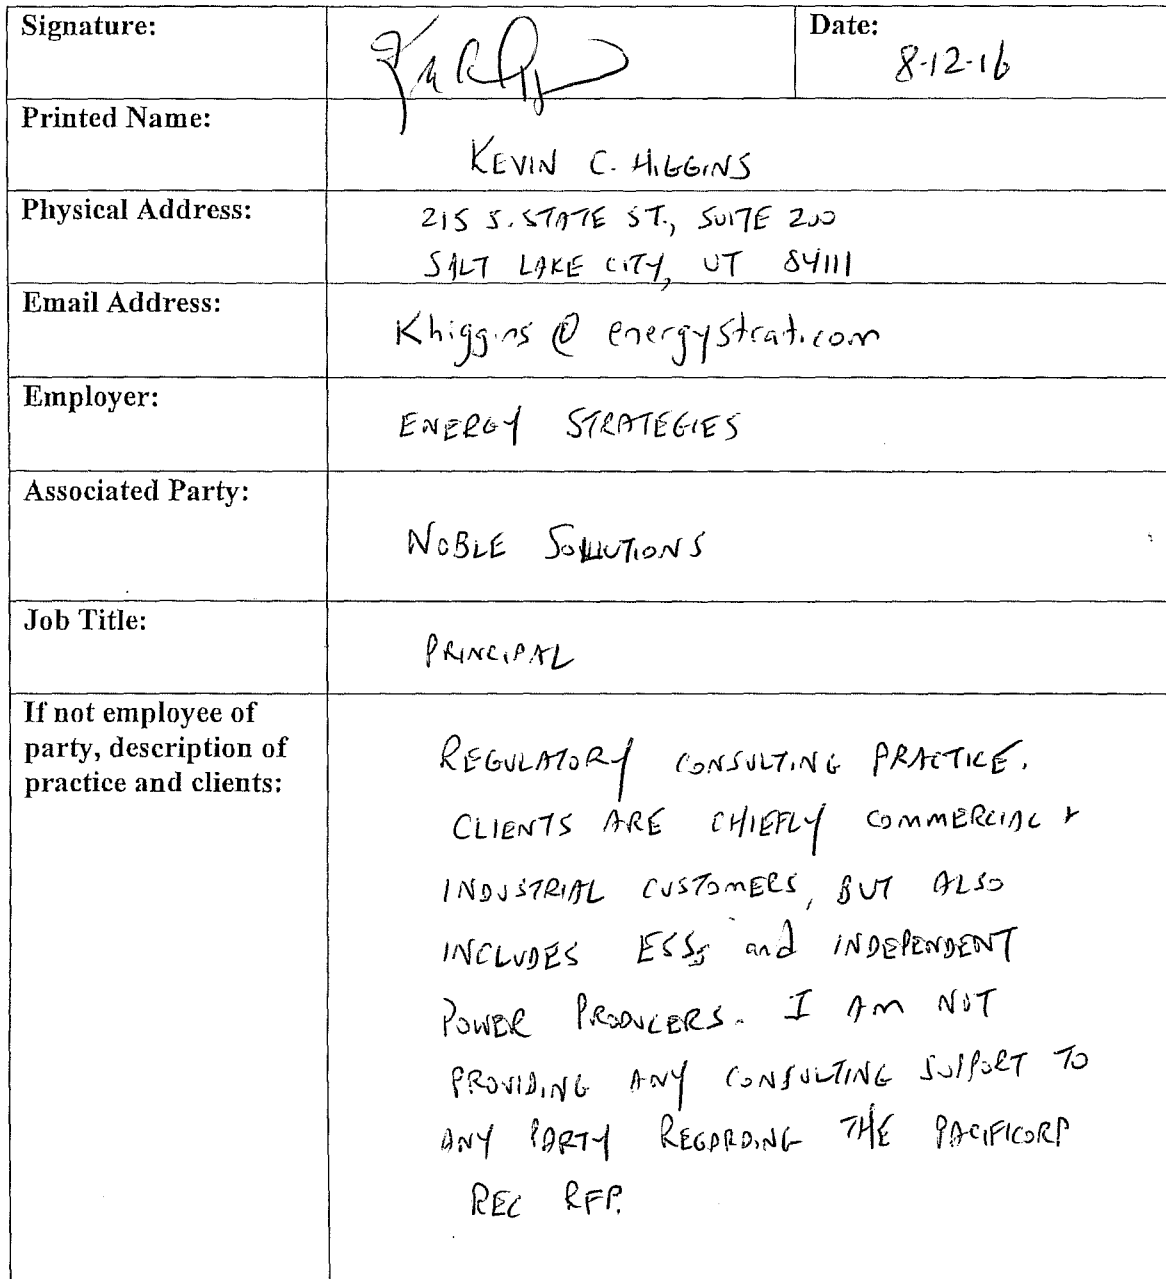 Signature:
Date:
8-12-16
Printed Name:
KEVIN C. HIGGINS
Physical Address:
215 S. STATE ST., SUITE 200
SALT LAKE CITY, UT 84111
Email Address:
Khiggins @ energystrat.com
Employer:
ENERGY STRATEGIES
Associated Party:
NOBLE SOLUTIONS
Job Title:
PRINCIPAL
If not employee of
party, description of
practice and clients:
REGULATORY CONSULTING PRACTICE.
CLIENTS ARE CHIEFLY COMMERCIAL +
INDUSTRIAL CUSTOMERS, BUT ALSO
INCLUDES ESSs and INDEPENDENT
POWER PRODUCERS. I AM NOT
PROVIDING ANY CONSULTING SUPPORT TO
ANY PARTY REGARDING THE PACIFICORP
REC RFP.